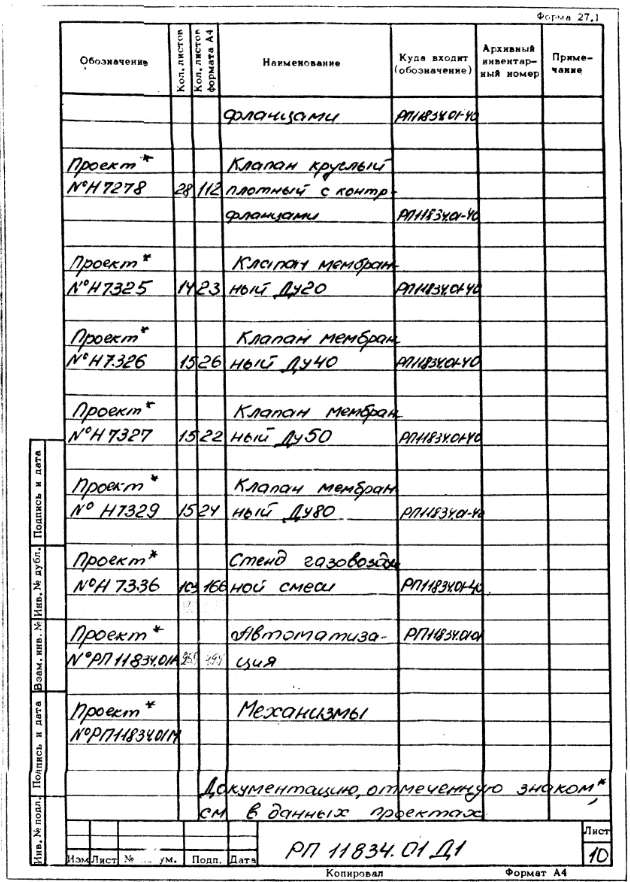 Форма 27.1
Обозначение Кол. листов Кол. листов формата А4 Наименование Куда входит (обозначение) Архивный инвентарный номер Примечание
фланцами РП11834.01-40
Проект * Клапан круглый
№Н7278 28 112 плотный с контр-
фланцами РП11834.01-40
Проект * Клапан мембран
№Н7325 14 23 ный Ду20 РП11834.01-40
Проект * Клапан мембран
№Н7326 15 26 ный Ду40 РП11834.01-40
Проект * Клапан мембран
№Н7327 15 22 ный Ду50 РП11834.01-40
Проект * Клапан мембран
№ Н7329 15 24 ный Ду80 РП11834.01-40
Проект * Стенд газовозду
№Н7336 166 ной смеси РП11834.01-40
Проект * Автоматиза-
№РП11834.01А ция
Проект * Механизмы
№РП11834.01М
Документацию, отмеченную знаком *,
см в данных проектах
Изм Лист № ум. Подп. Дата
РП 11834.01 Д1
Лист
10
Копировал Формат А4
Инв. № подл. Подпись и дата Взам. инв. № Инв. № дубл. Подпись и дата